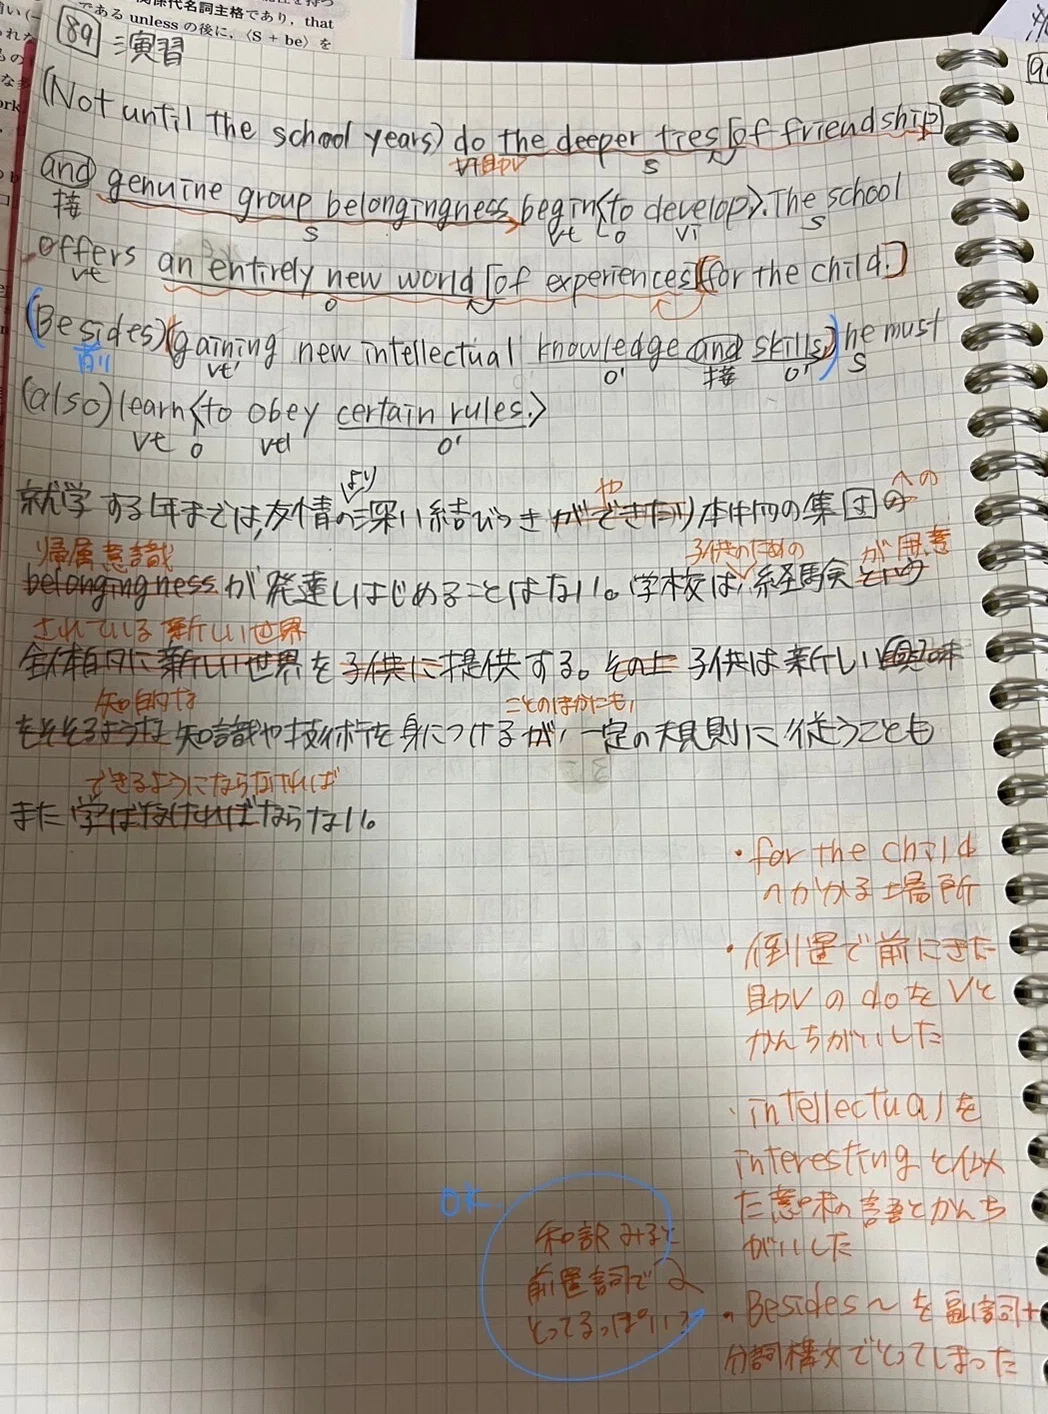 関係代名詞主格であり，that
である unless の後に，〈S + be〉を
89 演習
(Not until the school years) do the deeper ties [of friendship]
助V S
and genuine group belongingness begin <to develop>. The school
接 S Vt O Vi S
offers an entirely new world [of experiences] [for the child.]
Vt O
(Besides) (gaining new intellectual knowledge and skills,) he must
前 Vt' O' 接 O' S
(also) learn <to obey certain rules.>
Vt O Vt' O'
より や への
就学する年までは、友情の深い結びつきができたり本物の集団の
帰属意識 子供のための が用意
belongingnessが発達しはじめることはない。学校は、経験という
されている新しい世界
全体的に新しい世界を子供に提供する。その上子供は新しい興味
知的な ことのほかにも、
をそそるような知識や技術を身につけるが、一定の規則に従うことも
できるようにならなければ
また学ばなければならない。
・for the child
へかかる場所
・倒置で前にきた
助Vのdoを Vと
かんちがいした
・intellectualを
interestingと似
た意味の語とかんち
がいした
・Besides〜を副詞+
分詞構文でとってしまった
OK
和訳みると
前置詞で
とってるっぽい?